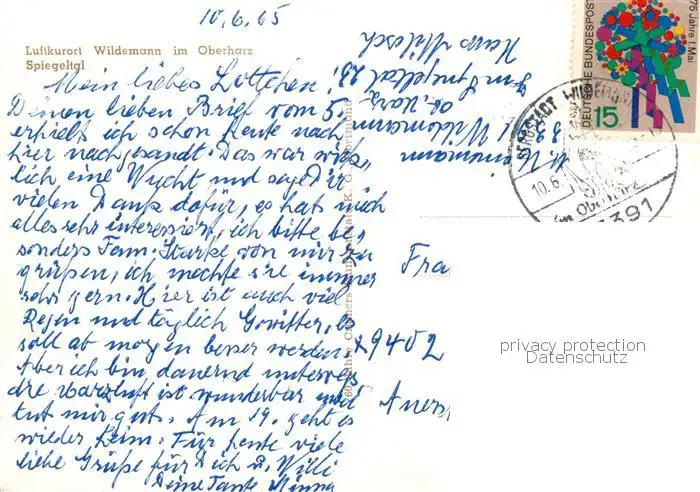 10.6.65
Luftkurort Wildemann im Oberharz
Spiegeltal
Mein liebes Lottchen!
Deinen lieben Brief vom 5.
erhielt ich schon heute nach
hier nachgesandt. Das war wirk
lich eine Wucht und sage Dir
vielen Dank dafür, es hat mich
alles sehr interessiert, ich bitte be-
sonders Fam. Starke von mir zu
grüßen, ich mochte sie immer
sehr gern. Hier ist auch viel
Regen und täglich Gewitter, es
soll ab morgen besser werden.
Aber ich bin dauernd unterwegs
die Harzluft ist wunderbar und
tut mir gut. Am 19. geht es
wieder heim. Für heute viele
liebe Grüße für Dich u. Willi
Deine Tante Minna
Wildemann
Spiegeltal
Haus
Fra
x 9402
Auers
DEUTSCHE BUNDESPOST
75 Jahre 1. Mai
15
10.6.
im Oberharz
3391
privacy protection
Datenschutz